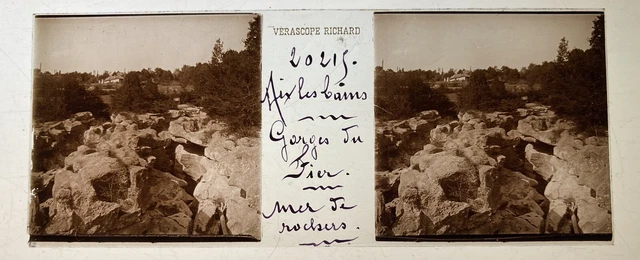 VÉRASCOPE RICHARD
20215.
Aix les bains
Gorges du
Fier.
mer de
rochers.